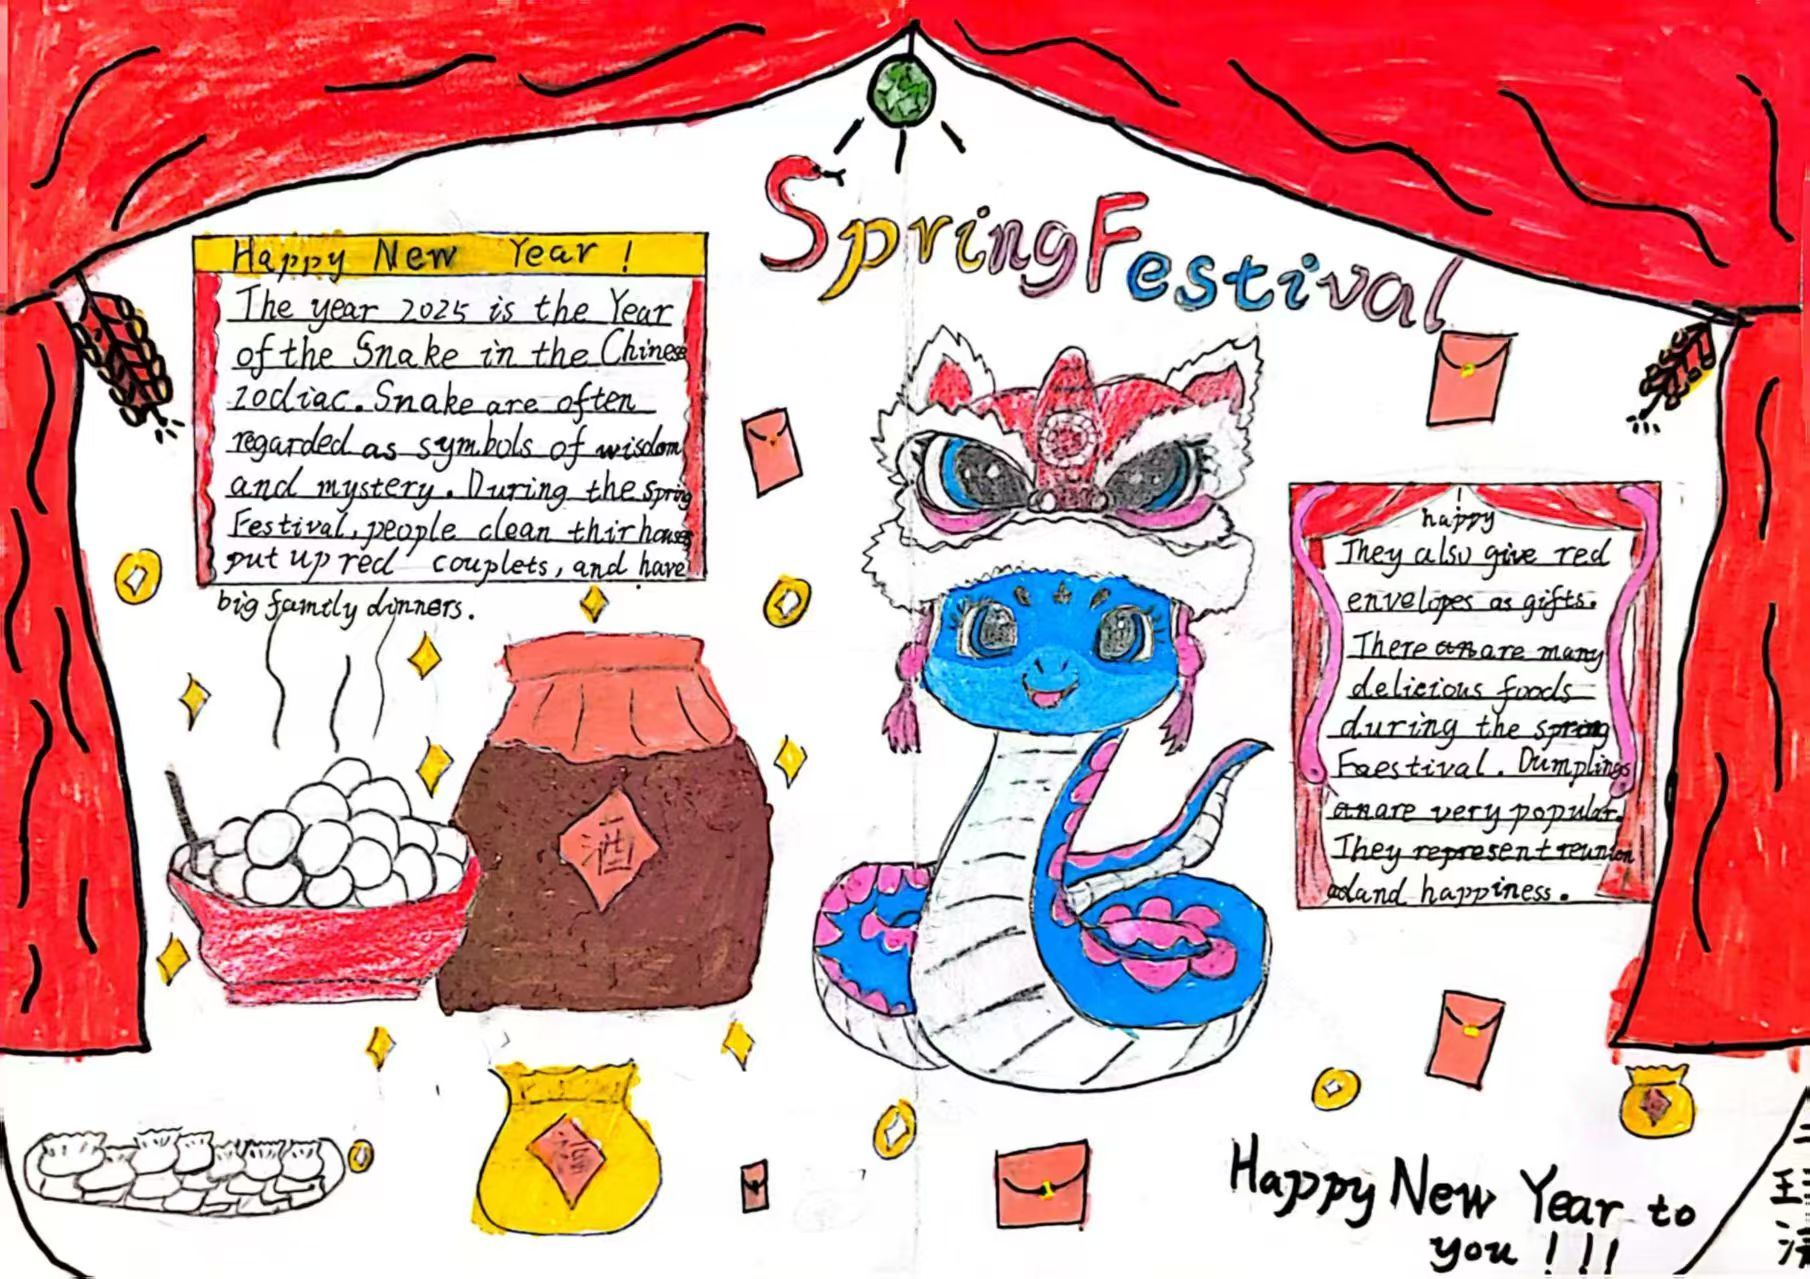 Spring Festival
Happy New Year !
The year 2025 is the Year
of the Snake in the Chinese
zodiac. Snake are often
regarded as symbols of wisdom
and mystery. During the spring
Festival, people clean thir houses
put up red couplets, and have
big family dinners.
happy
They also give red
envelopes as gifts.
There are many
delicious foods
during the spring
Faestival. Dumplings
are very popular.
They represent reunion
and happiness.
酒
Happy New Year to
you !!!
王